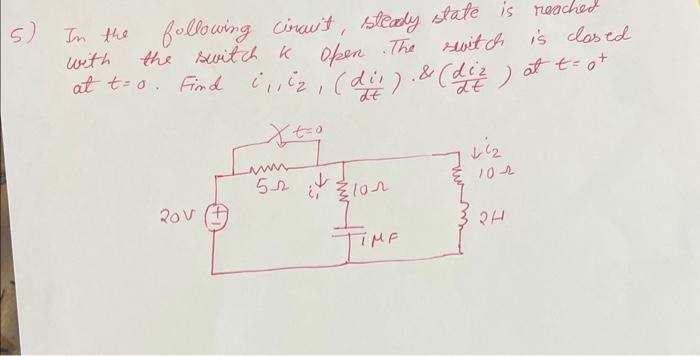 5) In the following circuit, steady state is reached
with the switch K open. The switch is closed
at t=0. Find i1, i2, (di1/dt) & (di2/dt) at t=0+
t=0
↓i2
5Ω i1↓ 10Ω 10Ω
20V + 2H
1MF